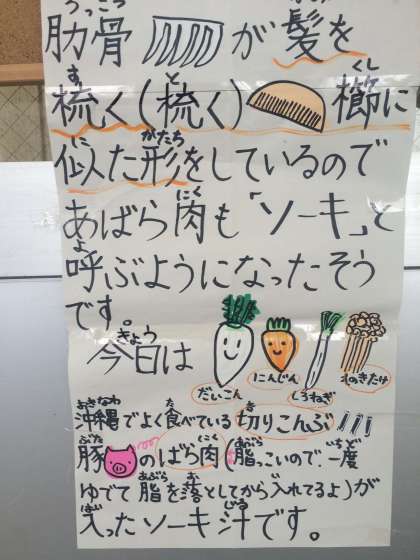 肋骨が髪を
梳く(梳く)櫛に
似た形をしているので
あばら肉も「ソーキ」と
呼ぶようになったそう
です。
今日は
だいこん にんじん しろねぎ えのきたけ
沖縄でよく食べている切りこんぶ
豚のばら肉(脂っこいので、一度
ゆでて脂を落としてから入れてるよ)が
入ったソーキ汁です。